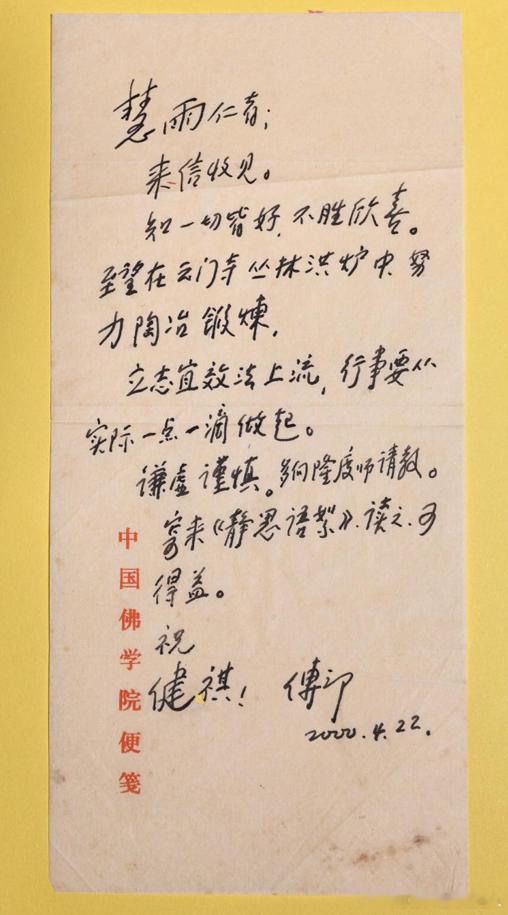 慧雨仁者：
来信收见。
知一切皆好，不胜欣喜。
至望在云门寺丛林洪炉中，努
力陶冶锻炼，
立志宜效法上流，行事要从
实际一点一滴做起。
谦虚谨慎。多向隆度师请教。
寄来《静思语絮》，读之，可
得益。
祝
健祺！ 傅印
2000.4.22.
中国佛学院便笺